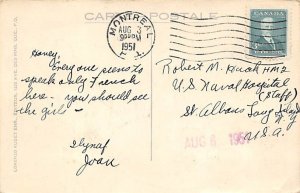 CARTE POSTALE
MONTREAL
AUG 3
1951
CANADA
Honey,
Everyone seems to
speak only French
here - you should see
the girls -
Joan
Robert M. Huck HM2
U.S. Naval Hospital
(Staff)
St. Albans Long Island
U.S.A.
AUG 6 1951